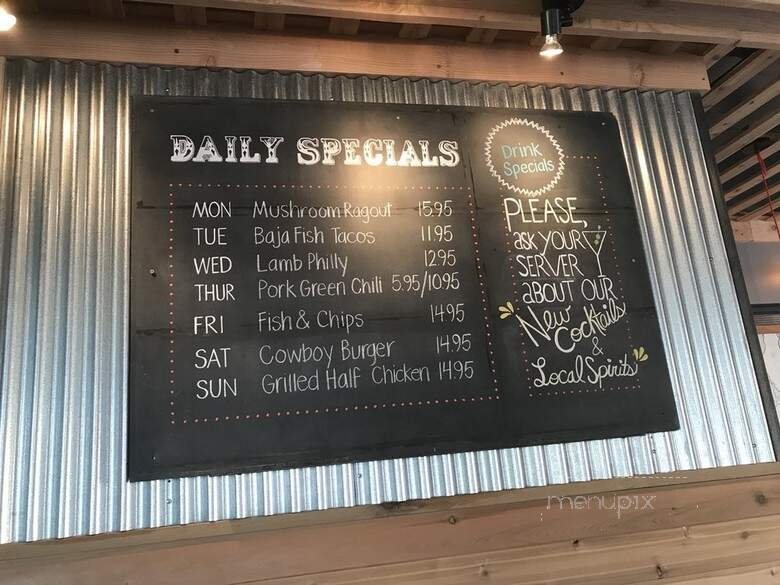 DAILY SPECIALS
MON Mushroom Ragout 15.95
TUE Baja Fish Tacos 11.95
WED Lamb Philly 12.95
THUR Pork Green Chili 5.95/10.95
FRI Fish & Chips 14.95
SAT Cowboy Burger 14.95
SUN Grilled Half Chicken 14.95
Drink
Specials
PLEASE,
ask YOUR
SERVER
aBOUT OUR
New
Cocktails
&
Local Spirits
menupix